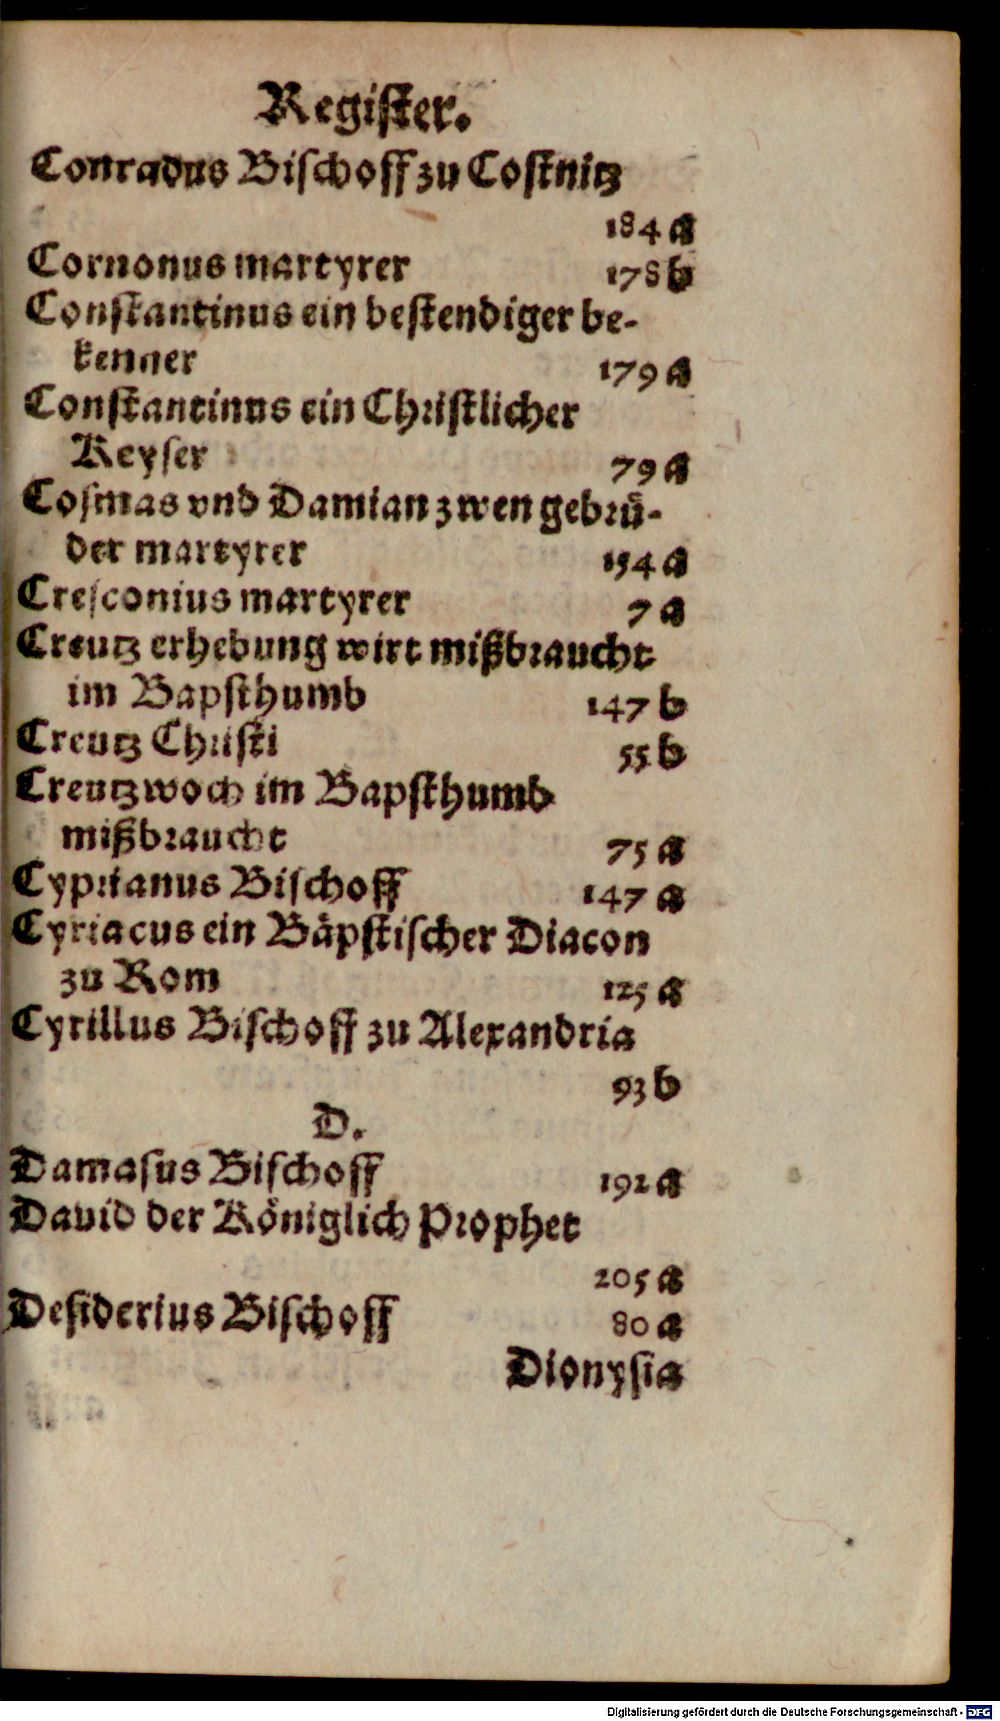 Register.
Conradus Bischoff zu Costnitz
184 a
Cornonus martyrer 178 b
Constantinus ein bestendiger be-
kenner 179 a
Constantinus ein Christlicher
Keyser 79 a
Cosmas vnd Damian zwen gebruͤ-
der martyrer 154 a
Cresconius martyrer 7 a
Creutz erhebung wirt mißbraucht
im Bapsthumb 147 b
Creutz Christi 55 b
Creutzwoch im Bapsthumb
mißbraucht 75 a
Cyprianus Bischoff 147 a
Cyriacus ein Baͤpstischer Diacon
zu Rom 125 a
Cyrillus Bischoff zu Alexandria
93 b
D.
Damasus Bischoff 192 a
Dauid der Koͤniglich Prophet
205 a
Desiderius Bischoff 80 a
Dionysia
Digitalisierung gefördert durch die Deutsche Forschungsgemeinschaft - DFG